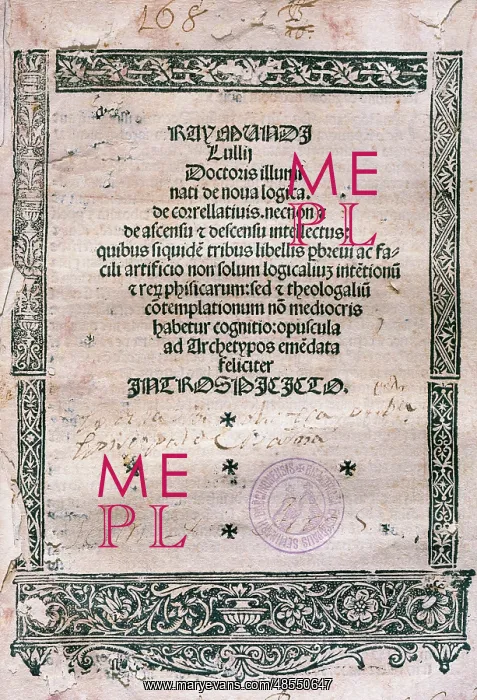 168
RAYMUNDI
Lullij
Doctoris illumi
nati de noua logica.
de correllatiuis. necnon ⁊
de ascensu ⁊ descensu intellectus:
quibus siquidē tribus libellis ꝑbreui ac fa-
cili artificio non solum logicaliuȝ intētionū
⁊ reꝝ phisicarum: sed ⁊ theologaliū
cōtemplationum nō mediocris
habetur cognitio: opuscula
ad Archetypos emēdata
feliciter
INTROSPICICTO.
ME
PL
ME
PL
www.maryevans.com/48550647